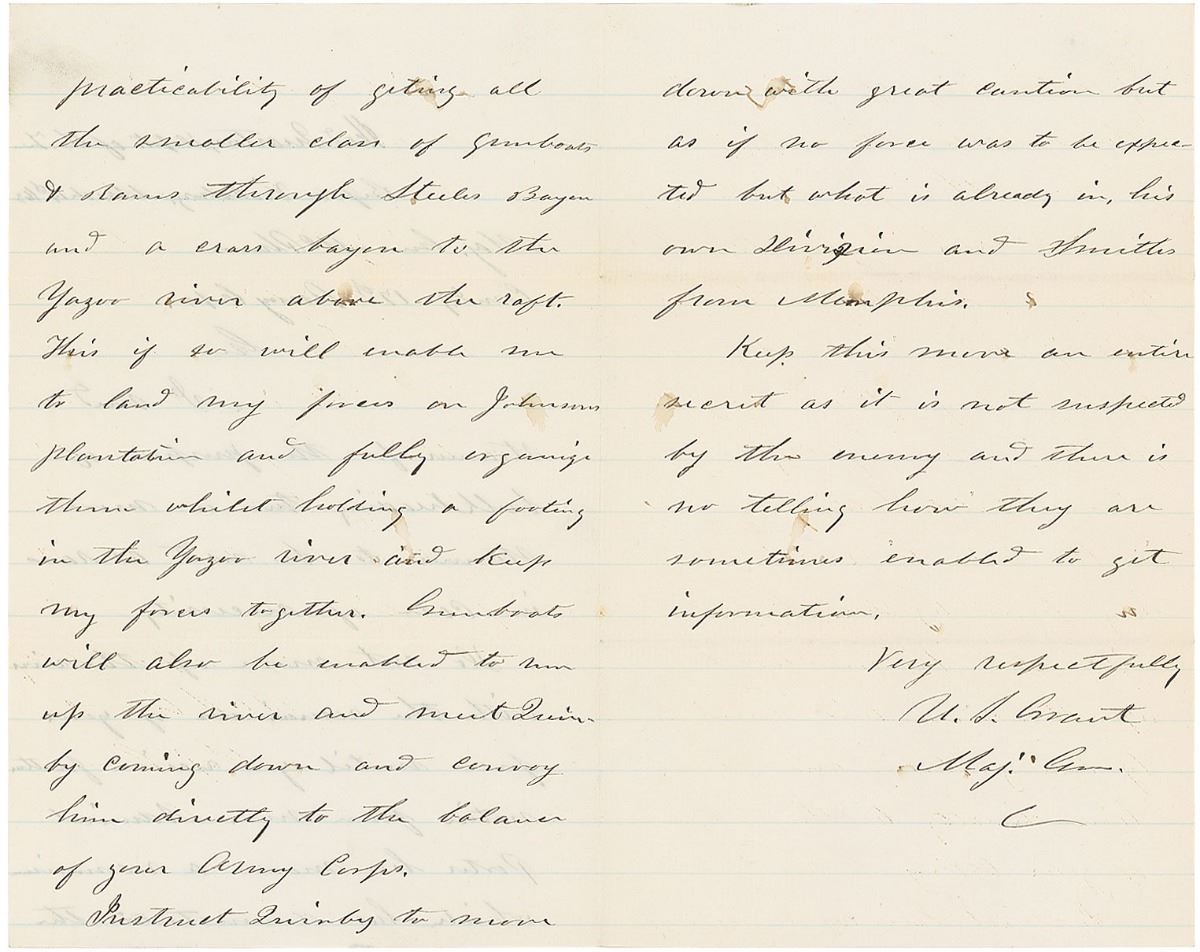 practicability of geting all
the smaller class of Gunboats
& Rams through Steeles Bayou
and a cross bayou to the
Yazoo river above the raft.
This if so will enable me
to land my forces on Johnsons
plantation and fully organize
them whilst holding a footing
in the Yazoo river and keep
my forces together. Gunboats
will also be enabled to run
up the river and meet Quin-
by coming down and convoy
him directly to the balance
of your Army Corps.
Instruct Quinby to move
down with great caution but
as if no force was to be expec-
ted but what is already in, his
own Division and Smiths
from Memphis.
Keep this move an entire
secret as it is not suspected
by the enemy and there is
no telling how they are
sometimes enabled to get
information.
Very respectfully
U. S. Grant
Maj. Gen.